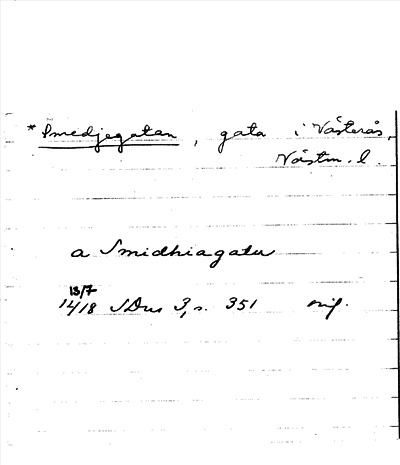 * Smedjegatan, gata i Västerås,
Västm. l.
a Smidhiagatu
13/7
1418 SDns 3, s. 351 orig.